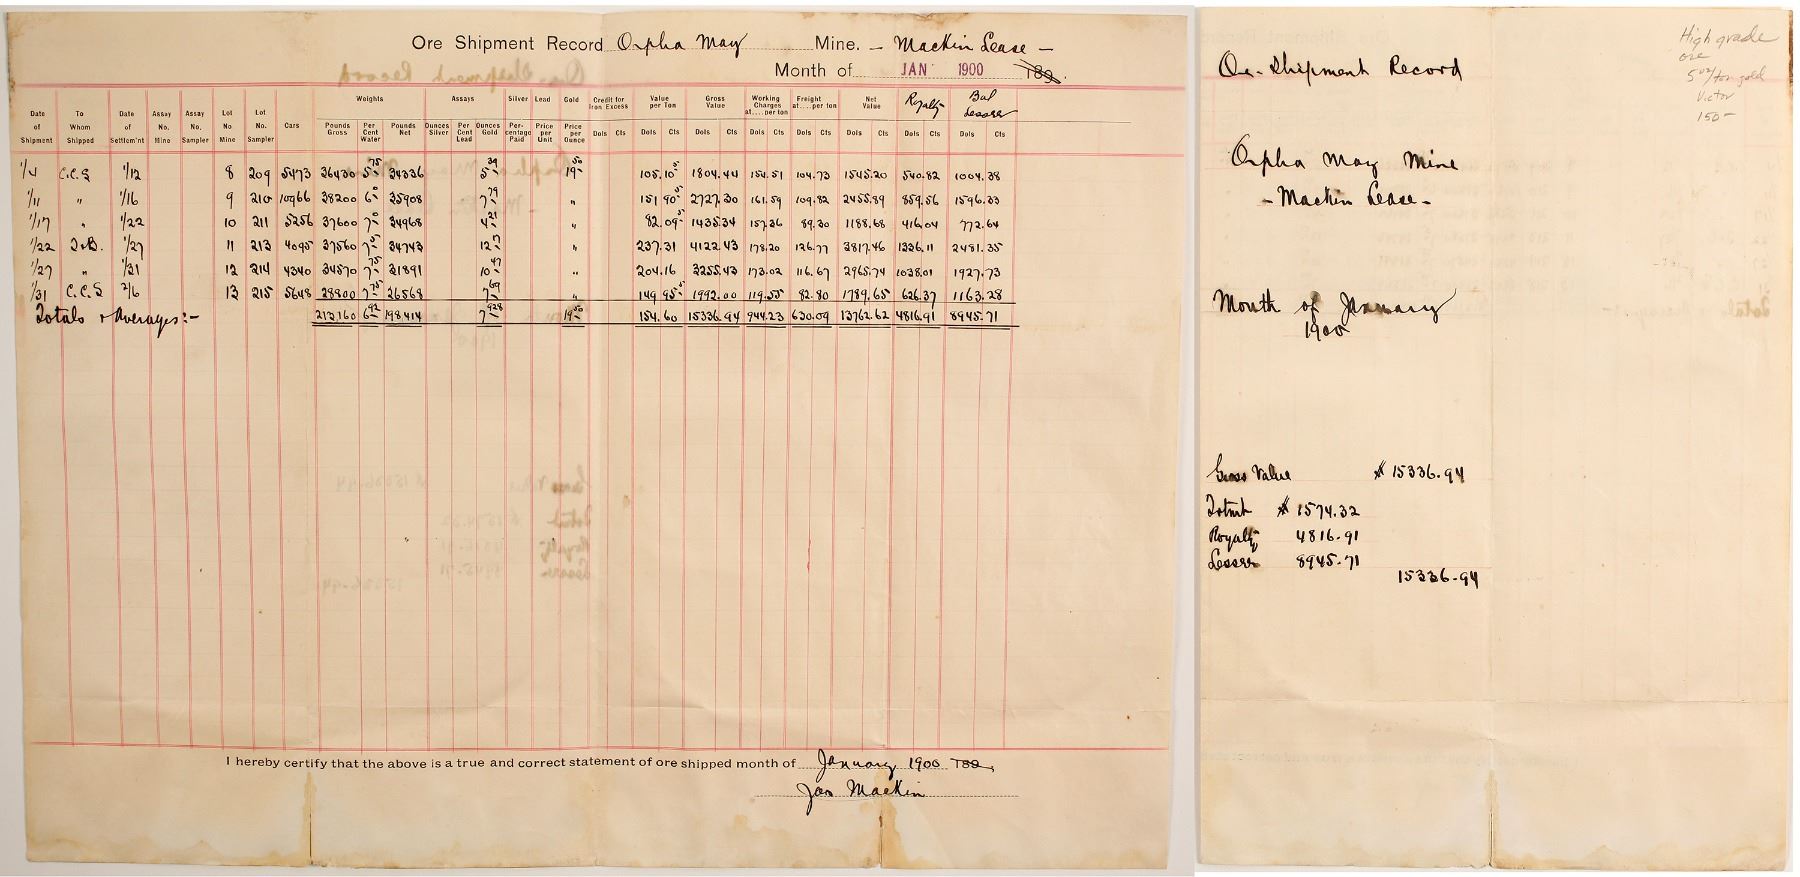 Ore Shipment Record Orpha May Mine. - Mackin Lease -
Month of JAN 1900 189 .
Date of Shipment | To Whom Shipped | Date of Settlem'nt | Assay No. Mine | Assay No. Sampler | Lot No Mine | Lot No. Sampler | Cars | Weights: Pounds Gross | Per Cent Water | Pounds Net | Assays: Ounces Silver | Per Cent Lead | Ounces Gold | Silver Per-centage Paid | Lead Price per Unit | Gold Price per Ounce | Credit for Iron Excess Dols Cts | Value per Ton Dols Cts | Gross Value Dols Cts | Working Charges at....per ton Dols Cts | Freight at....per ton Dols Cts | Net Value Dols Cts | Royalty | Bal Lessee Dols Cts
1/4 C.C.S 1/12 8 209 5473 36430 5 75 34336 5 39 19 50 105.10 5 1804.44 154.51 104.73 1545.20 540.82 1004.38
1/11 " 1/16 9 210 10966 38200 6 0 35908 7 79 " 151 90 5 2727.30 161.59 109.82 2455.89 859.56 1596.33
1/17 " 1/22 10 211 5256 37600 7 0 34968 4 21 " 82.09 5 1435.34 157.36 89.30 1188.68 416.04 772.64
1/22 1/27 11 213 4095 37560 7 5 34743 12 17 " 237.31 4122.43 178.20 126.77 3817.46 1336.11 2481.35
1/27 " 1/31 12 214 4340 34570 7 75 31891 10 47 " 204.16 3255.43 173.02 116.67 2965.74 1038.01 1927.73
1/31 C.C.S 2/6 13 215 5648 28800 7 75 26568 7 69 " 149 95 5 1992.00 119.55 82.80 1789.65 626.37 1163.28
Totals & Averages:- 213160 6 92 198414 7 928 19 50 154.60 15336.94 944.23 630.09 13762.62 4816.91 8945.71
I hereby certify that the above is a true and correct statement of ore shipped month of January 1900 189 ,
Jas Mackin
High grade
ore
5 oz/ton gold
Victor
150-
Ore Shipment Record
Orpha May Mine
- Mackin Lease -
Month of January
1900
Gross Value $ 15336.94
$ 1574.32
Royalty 4816.91
Lessee 8945.71
15336.94